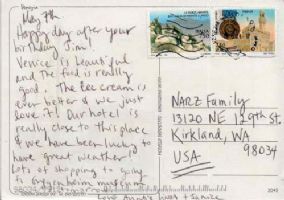 May 7th
Happy day after your
birthday Jim!
Venice is beautiful
and the food is really
good. The Ice cream is
even better & we just
love it! Our hotel is
really close to this place
& we have been lucky to
have great weather!
Lots of shopping & going
to Guggenheim museum
Love
NARZ Family
13120 NE 129th St.
Kirkland, WA
98034
USA
ITALIA
ITALIA
98034
2043